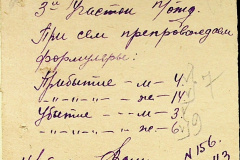 3й Участок
При сем препровождаем
формуляры:
Прибытие — м — 4.
—"—"— ж — 14. 7
Убытие — м — 3.
—"—"— ж — 6. 9
N 156.